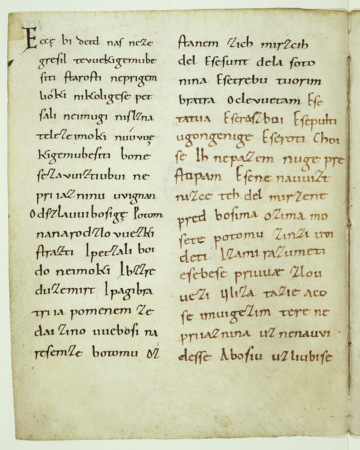 Ecce bi detd naſ neze
greſil tevuekigemube
ſiti ſtaroſti neprigem
lióki nikoligeſe pet
ſali neimugi niſlzna
telezeimoki nuúvue
kigemubeſiti bone
ſezavuiztiubui ne
priiazninu uvignan
Odſzlauuiboſigę Potom
nanarodzlovuezki
ſtrazti Ipetzali boi
do neimoki Ibzzre
duzemirt Ipagibra
triia pomenem ze
dai zino uueboſi na
reſemze botomu oz
ſtanem zich mirzcih
del Eſeſunt dela ſoto
nina Eſetrebu tuorim
bratra Oclevuetam Eſe
tatua Eſerazboi Eſepulti
ugongenige Eſeroti Choi
ſe Ih nepazem nuge pre
ſtopam Eſene nauuizt
nizce teh del mirzene
pred boſima ozima mo
ſete potomu zinzi uvi
deti Izami razumeti
eſebeſe priuuae zlou
uezi Uliza tazie aco
ſe imuigezim tere ne
priiaznina uznenauvi
deſſe Aboſiu uzliubiſe